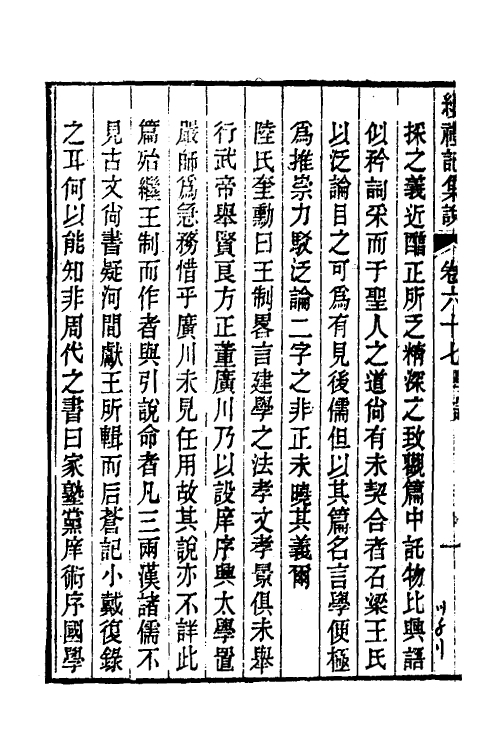 續禮記集說 卷六十七
探之義近醇正所乏精深之致觀篇中託物比興語
似矜詞采而于聖人之道尙有未契合者石梁王氏
以泛論目之可爲有見後儒但以其篇名言學便極
爲推崇力駁泛論二字之非正未曉其義爾
陸氏奎勳曰王制畧言建學之法孝文孝景俱未舉
行武帝舉賢良方正董廣川乃以設庠序興太學置
嚴師爲急務惜乎廣川未見任用故其說亦不詳此
篇殆繼王制而作者與引說命者凡三兩漢諸儒不
見古文尙書疑河間獻王所輯而后蒼記小戴復錄
之耳何以能知非周代之書曰家塾黨庠術序國學